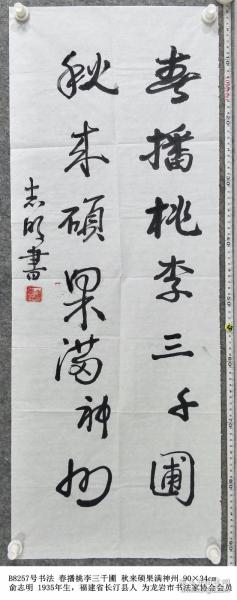 春播桃李三千圃
秋来硕果满神州
志明書
B8257号书法 春播桃李三千圃 秋来硕果满神州 90×34cm
俞志明 1935年生，福建省长汀县人 为龙岩市书法家协会会员